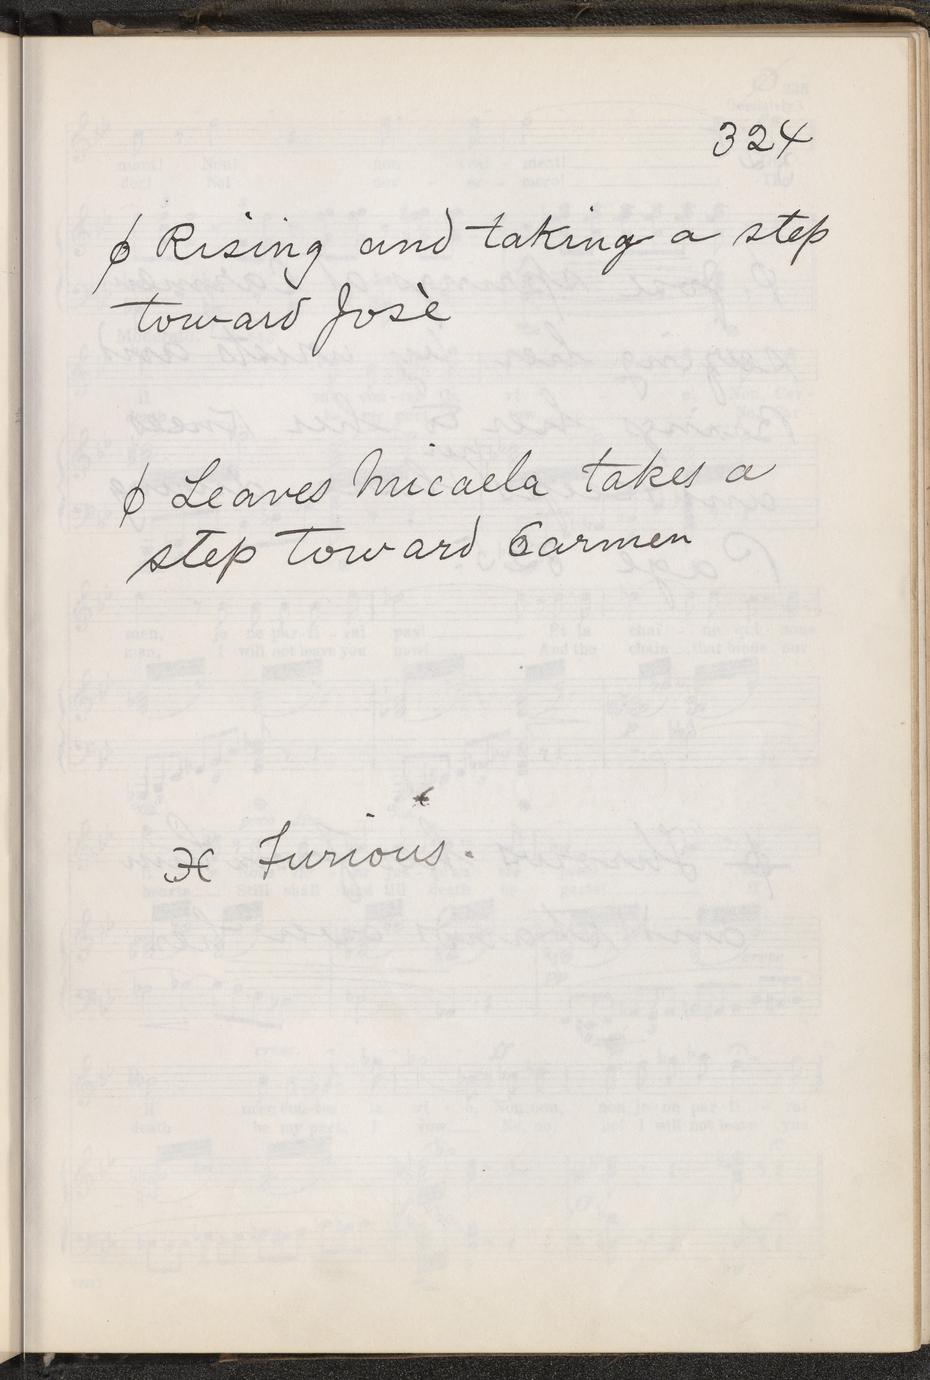 324
ϕ Rising and taking a step
toward Josè
ϕ Leaves Micaela takes a
step toward Carmen
Ӿ Furious.